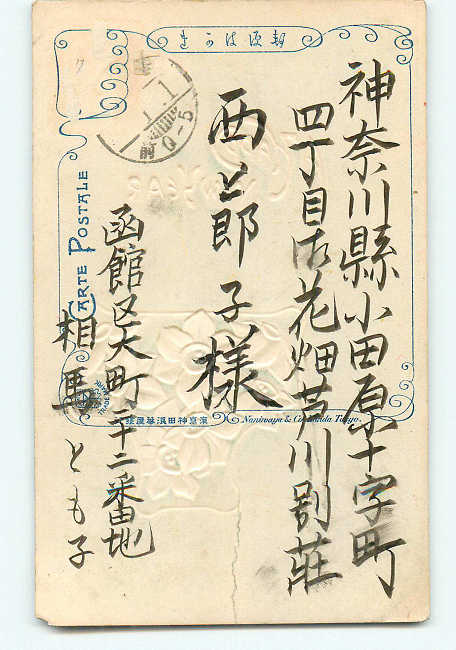 神奈川縣小田原十字町
四丁目御花畑芦川別荘
西と郎子様
函館区大町三十二番地
相馬とも子
CARTE POSTALE
東京神田浪華屋製
Naniwaya & Co. Kanda Tokyo.
前0-5